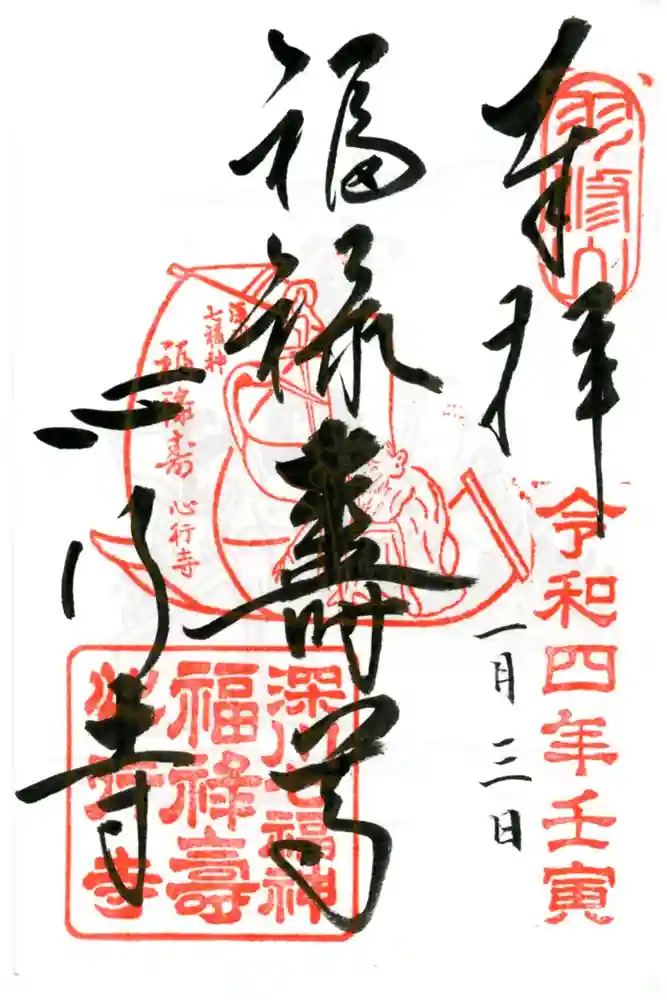 双修山
奉拝
令和四年壬寅
一月三日
福禄壽尊
心行寺
深川
七福神
福禄寿
心行寺
深川七福神
福禄壽
心行寺